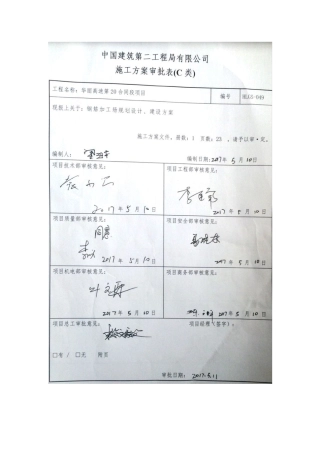 中国建筑第二工程局有限公司
施工方案审批表(C类)
工程名称：华丽高速第20合同段项目 编号
现报上关于：钢筋加工场规划设计、建设方案
施工方案文件，册数：1 页数：23 ，请予以审定。
编制人： 编制日期：2017年5月10日
项目技术部审核意见： 项目工程部审核意见：
2017年5月10日 2017年5月10日
项目质量部审核意见： 项目安全部审核意见：
同意
2017年5月10日 2017年5月10日
项目机电部审核意见： 项目商务部审核意见：
2017年5月10日 2017年5月10日
项目总工审批意见： 项目经理（签字）：
□有 / □无 附页
审批日期：2017.5.11